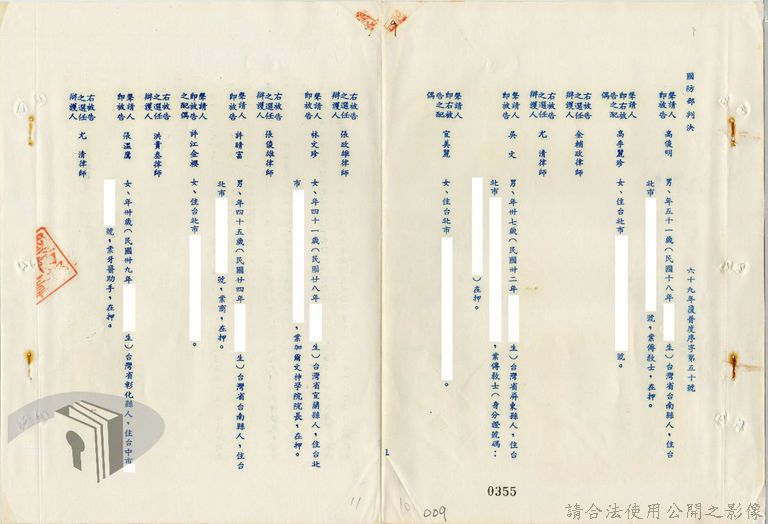 國防部判決
六十九年覆普度序字第五十號
聲請人即被告 高俊明 男、年五十一歲(民國十八年 生)台灣省台南縣人,住台
北市 號,業傳教士,在押。
聲請人即右被告之配偶 高李麗珍 女、住台北市 號。
右被告之選任辯護人 金輔政律師
尤 清律師
聲請人即被告 吳 文 男、年卅七歲(民國卅二年 生)台灣省屏東縣人,住台
北市 ,業傳教士(身分證號碼:
)在押。
聲請人即右被告之配偶 宣美麗 女、住台北市 。
1
0355
右被告之選任辯護人 張政雄律師
聲請人即被告 林文珍 女、年四十一歲(民國廿八年 生)台灣省宜蘭縣人,住台北
市 ,業加爾文神學院院長,在押。
右被告之選任辯護人 張俊雄律師
聲請人即被告 許晴富 男、年四十五歲(民國廿四年 生)台灣省台南縣人,住台
北市 號,業商,在押。
聲請人即被告之配偶 許江金櫻 女、住台北市 。
右被告之選任辯護人 洪貴叁律師
聲請人即被告 張溫鷹 女、年卅歲(民國卅九年 生)台灣省彰化縣人,住台中市
號,業牙醫助手,在押。
右被告之選任辯護人 尤 清律師
9
11
10
009
請合法使用公開之影像